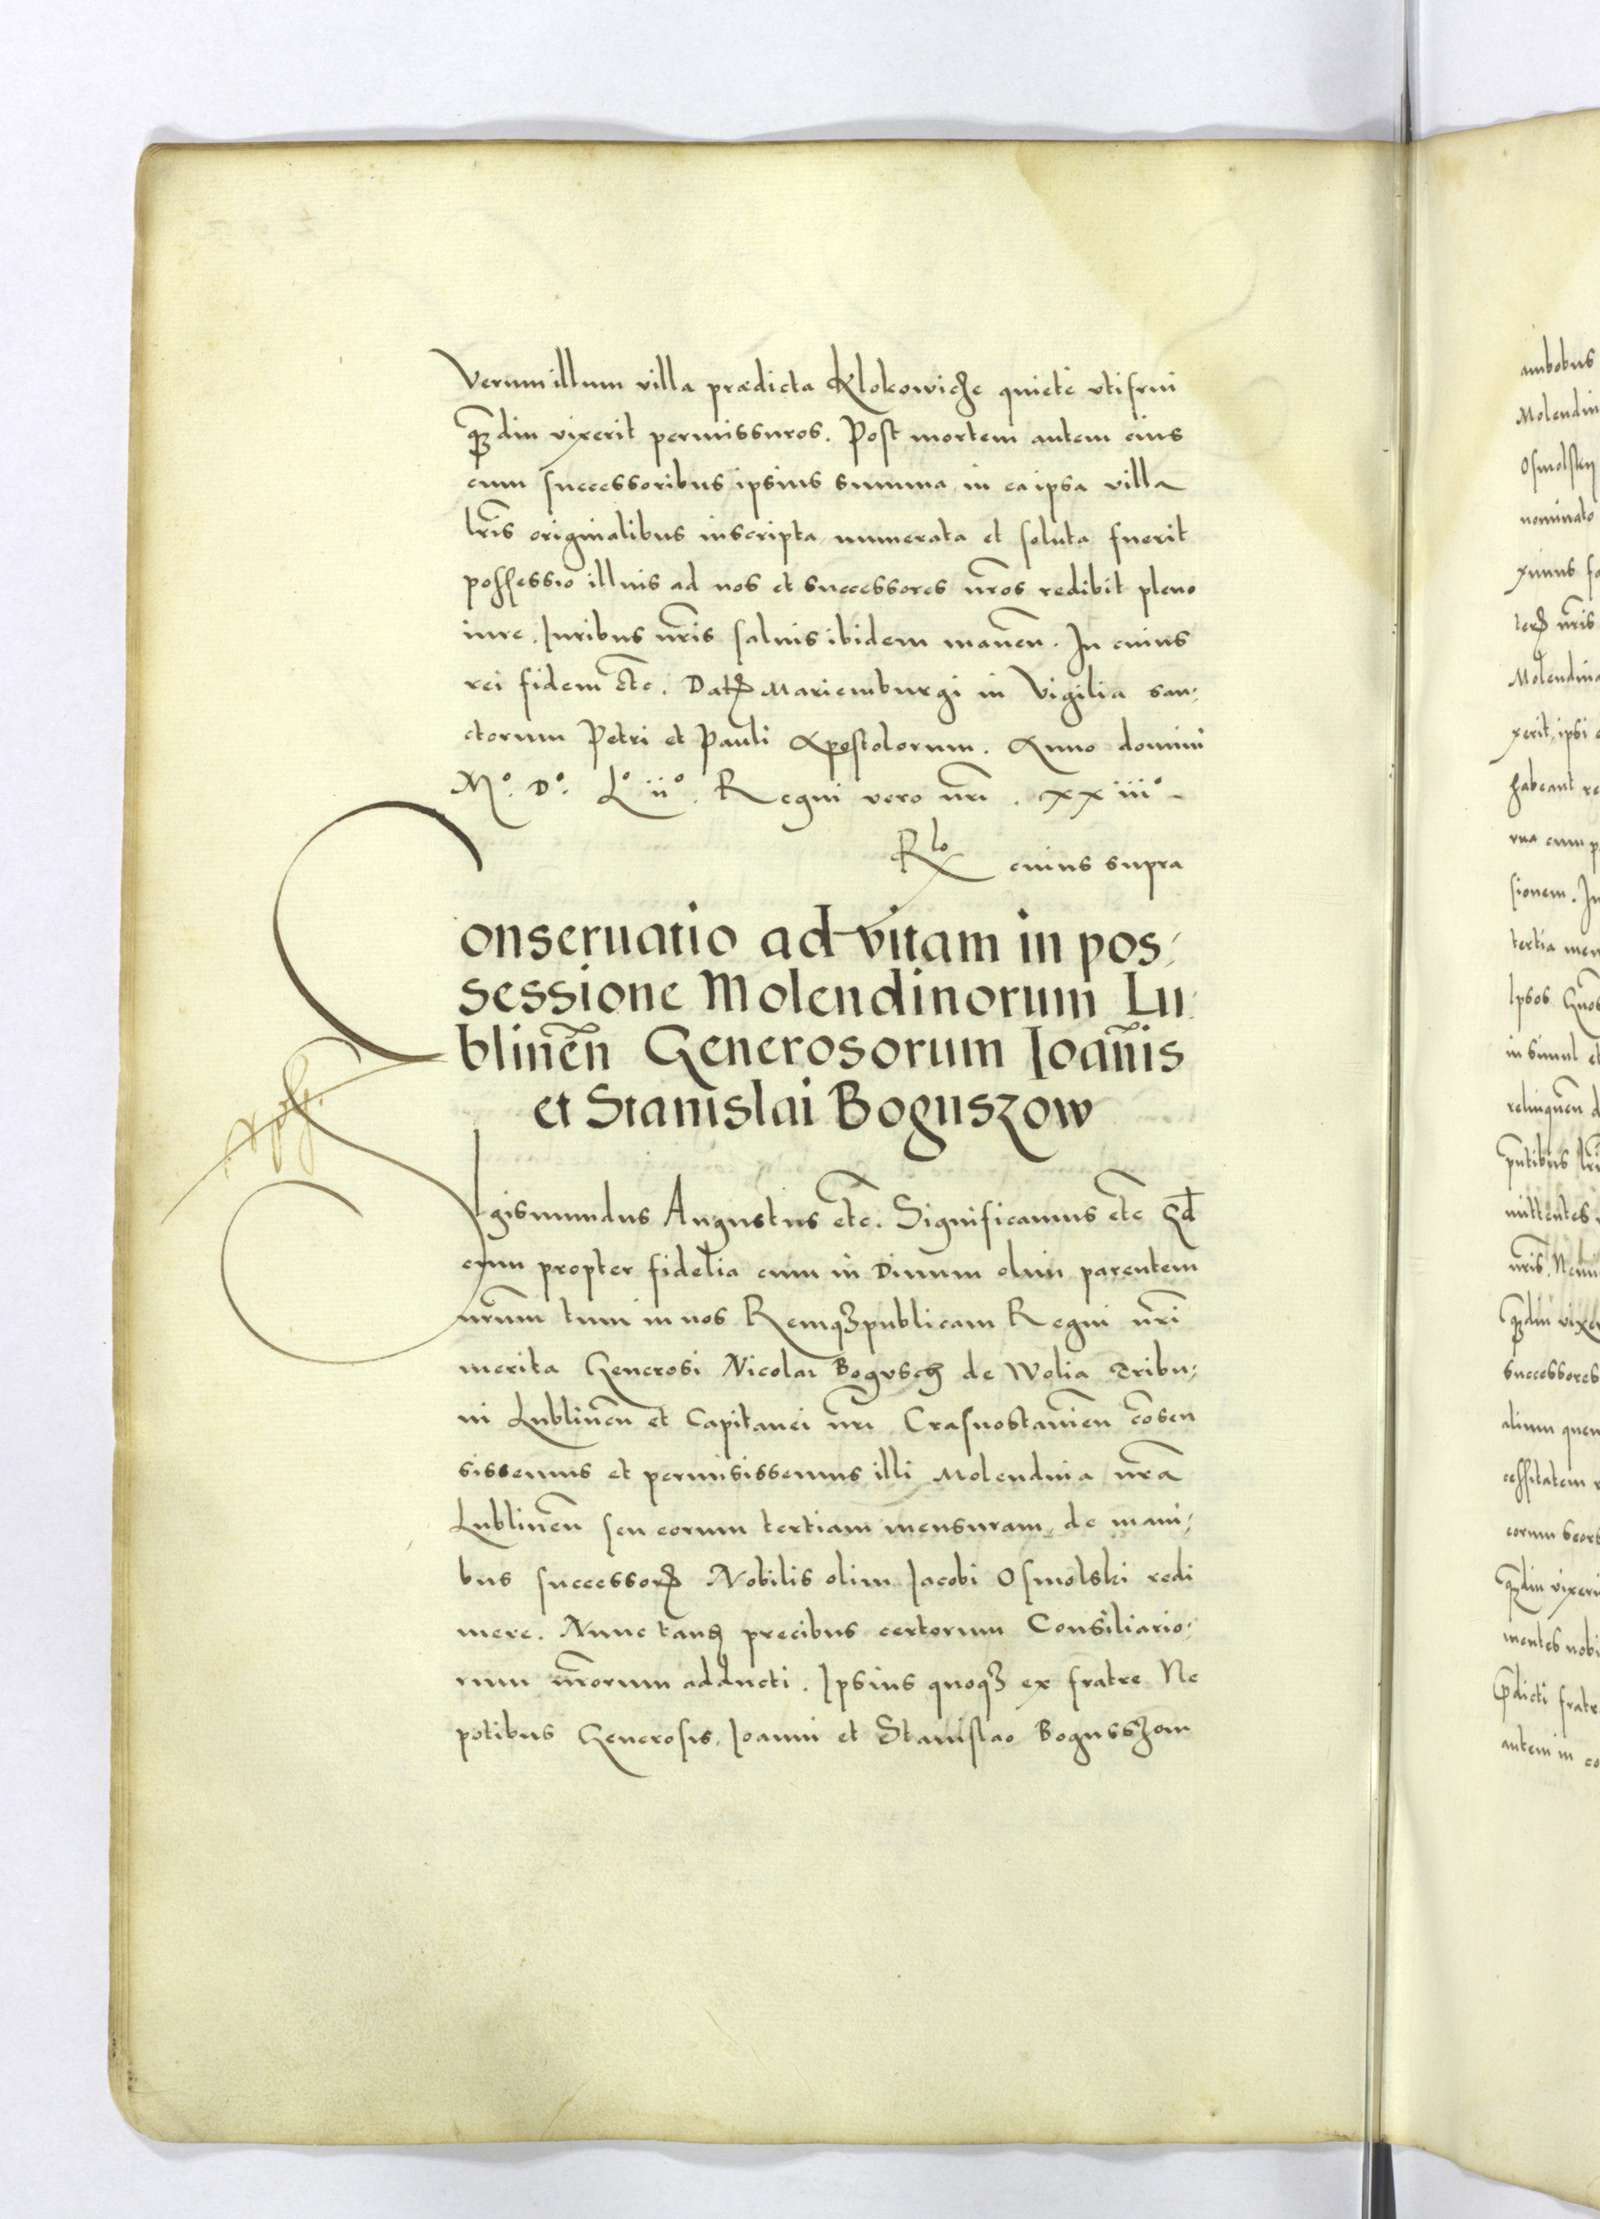 Verum illum villa prædicta Klokowicze quiete vtifrui
qȝdiu vixerit permissuros. Post mortem autem eius
cum successoribus ipsius summa in ea ipsa villa
lr̃is originalibus inscripta numerata et soluta fuerit
possessio illius ad nos et successores nr̃os redibit pleno
iure. Iuribus nr̃is saluis ibidem maneñ. In cuius
rei fidem etc̃. Datꝝ Mariemburgi in Vigilia san-
ctorum Petri et Pauli Apostolorum. Anno domini
Mº. Dº. Lº iiº. Regni vero nr̃i. xxiiiº
Rlo cuius supra
Conseruatio ad vitam in pos-
sessione Molendinorum Lu-
blineñ Generosorum Ioañis
et Stanislai Boguszow
Sigismundus Augustus etc̃. Significamus etc̃ Qd
cum propter fidelia cum in Diuum olim parentem
nr̃um tum in nos Remqȝpublicam Regni nr̃i
merita Generosi Nicolai Bogusch de Wolia Tribu-
ni Lublineñ et Capitanei nr̃i Crasnostanieñ cõsen
sissemus et permisissemus illi Molendina nr̃a
Lublineñ seu eorum tertiam mensuram de mani-
bus successorꝝ Nobilis olim Iacobi Osmolski redi
mere. Nunc tanqȝ precibus certorum Consiliario-
rum nr̃orum adducti. Ipsius quoqȝ ex fratre Ne
potibus Generosis, Ioanni et Stanislao Bogusszom
ambobus
Molendin
Osmolskij
nominato
terꝝ nr̃is
Molendina
xerit, ipsi
habeant re
rua cum p
sionem. In
tertia men
Ipsos Gnos
in simul et
relinqueñ d
mittentes
nr̃is. Nemi
qȝdiu vixer
successores
alium quem
cessitatem
eorum seors
qȝdiu vixeri
mentes nobi
p̃dicti fratr
autem in co